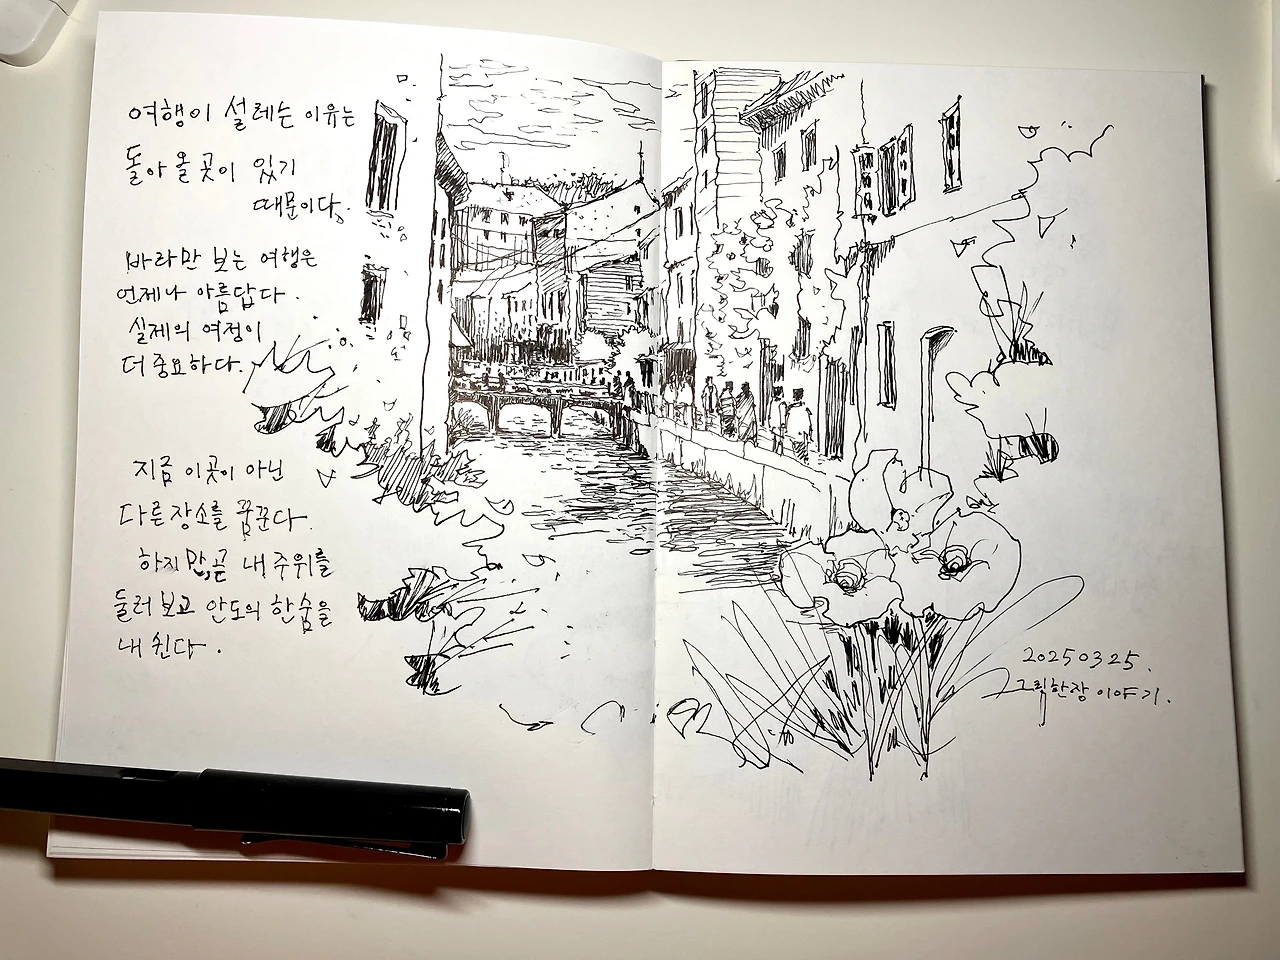 여행이 설레는 이유는
돌아올 곳이 있기
때문이다.
바라만 보는 여행은
언제나 아름답다.
실제의 여정이
더 중요하다.
지금 이곳이 아닌
다른 장소를 꿈꾼다.
하지만, 곧 내 주위를
둘러보고 안도의 한숨을
내쉰다.
20250325.
그림한장이야기.